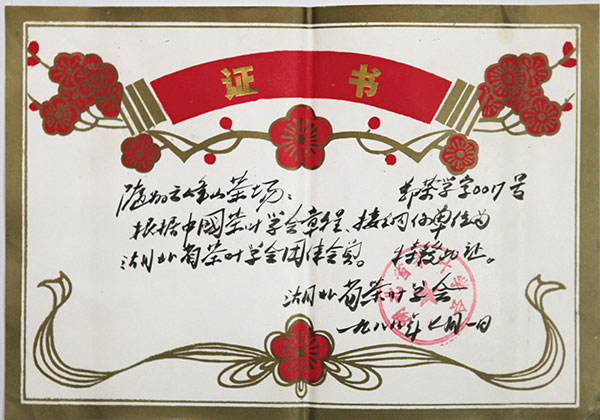 证书
鄂茶学字0017号
随州云峰山茶场：
根据中國茶叶学会章程、接纳你单位为
湖北省茶叶学会团体会员。特发此证。
湖北省茶叶学会
一九八八年七月一日